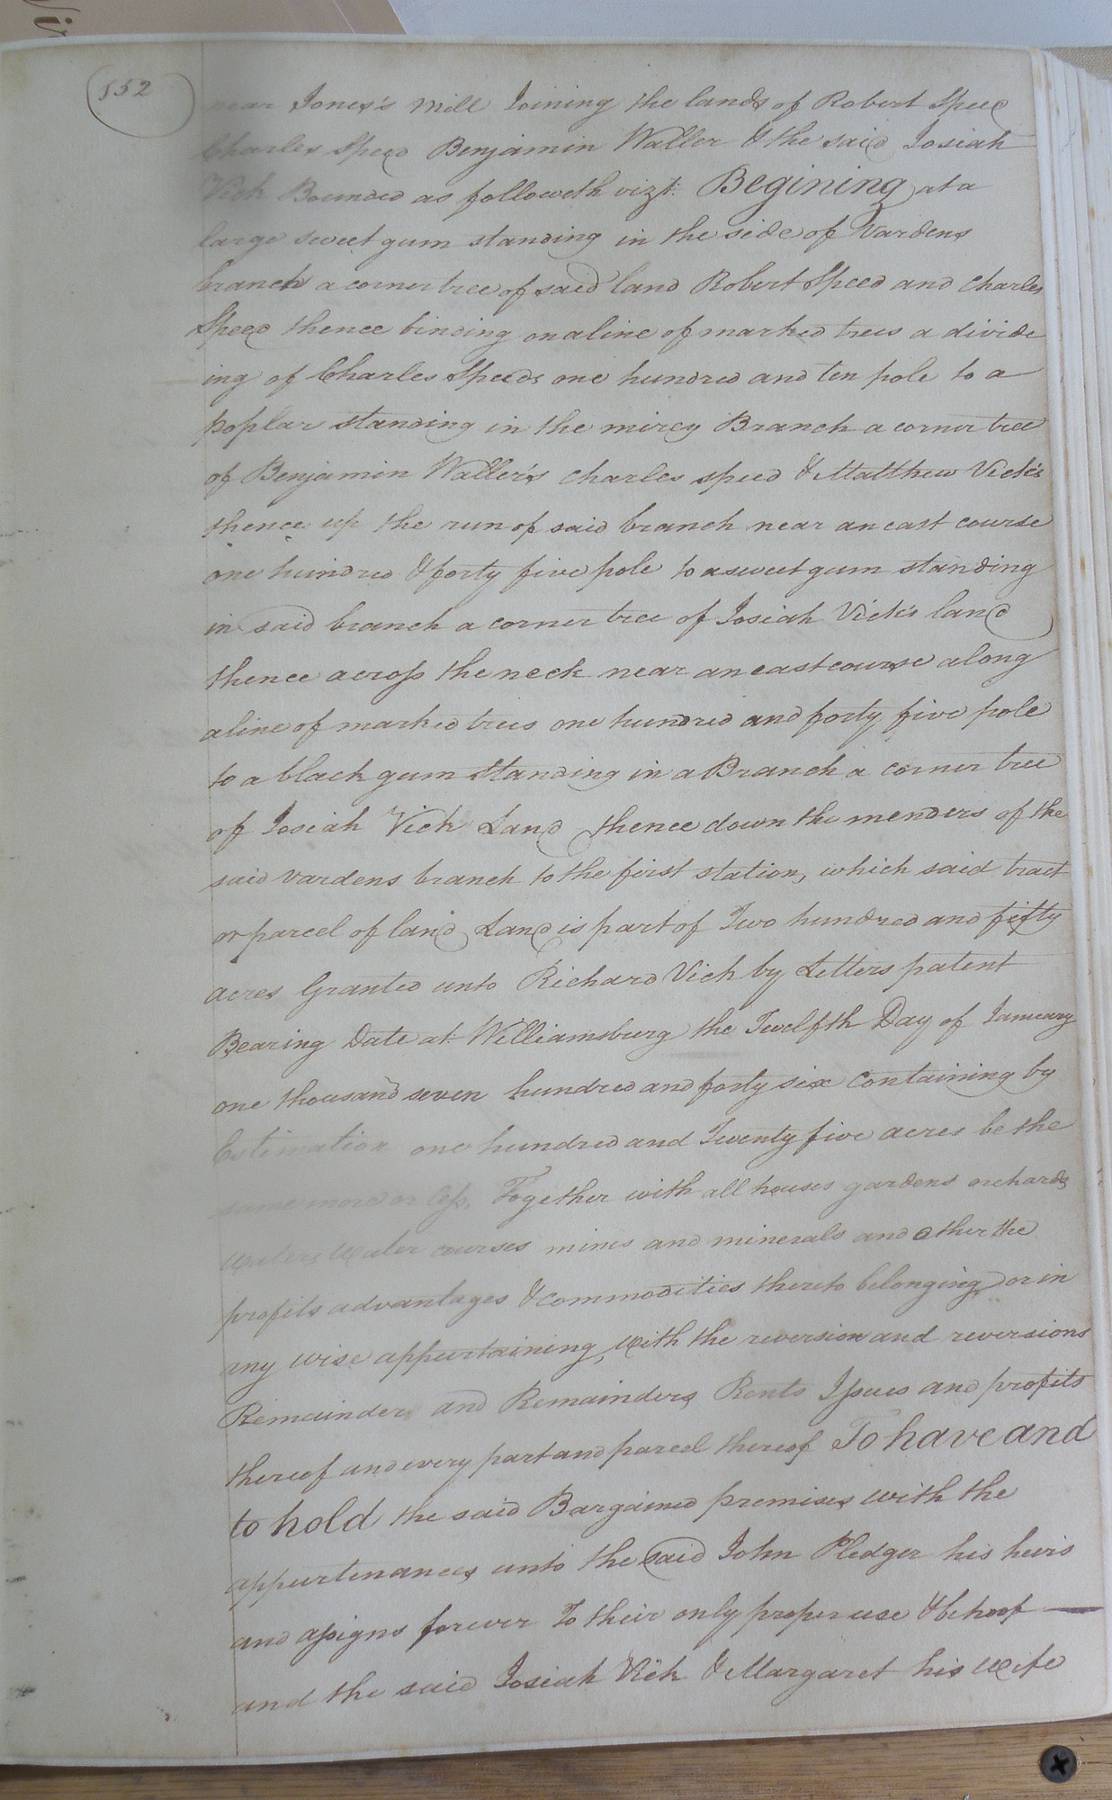 552
near Jones's Mill Joining the lands of Robert Speed
Charles Speed Benjamin Waller & the said Josiah
Vick Bounded as followeth vizt. Begining at a
large sweet gum standing in the side of Vardens
branch a corner tree of said land Robert Speed and Charles
Speed thence binding on a line of marked trees a divide
ing of Charles Speeds one hundred and ten pole to a
poplar standing in the mirey Branch a corner tree
of Benjamin Waller's Charles Speed & Matthew Vick's
thence up the run of said branch near an east course
one hundred & forty five pole to a sweet gum standing
in said branch a corner tree of Josiah Vick's land
thence across the neck near an east course along
a line of marked trees one hundred and forty five pole
to a black gum standing in a Branch a corner tree
of Josiah Vick Land thence down the menders of the
said Vardens branch to the first station, which said tract
or parcel of land Land is part of Two hundred and fifty
acres Granted unto Richard Vick by Letters patent
Bearing Date at Williamsburg the Twelfth Day of January
one thousand seven hundred and forty six Containing by
Estimation one hundred and Twenty five acres be the
same more or less, Together with all houses gardens orchards
waters, Water courses mines and minerals and other the
profits advantages & commodities thereto belonging or in
any wise appurtaining, with the reversion and reversions
Remainder and Remainders Rents Issues and profits
thereof and every part and parcel thereof To have and
to hold the said Bargained premises with the
appurtenances unto the said John Pledger his heirs
and assigns forever To their only proper use & behoof
and the said Josiah Vick & Margaret his wife